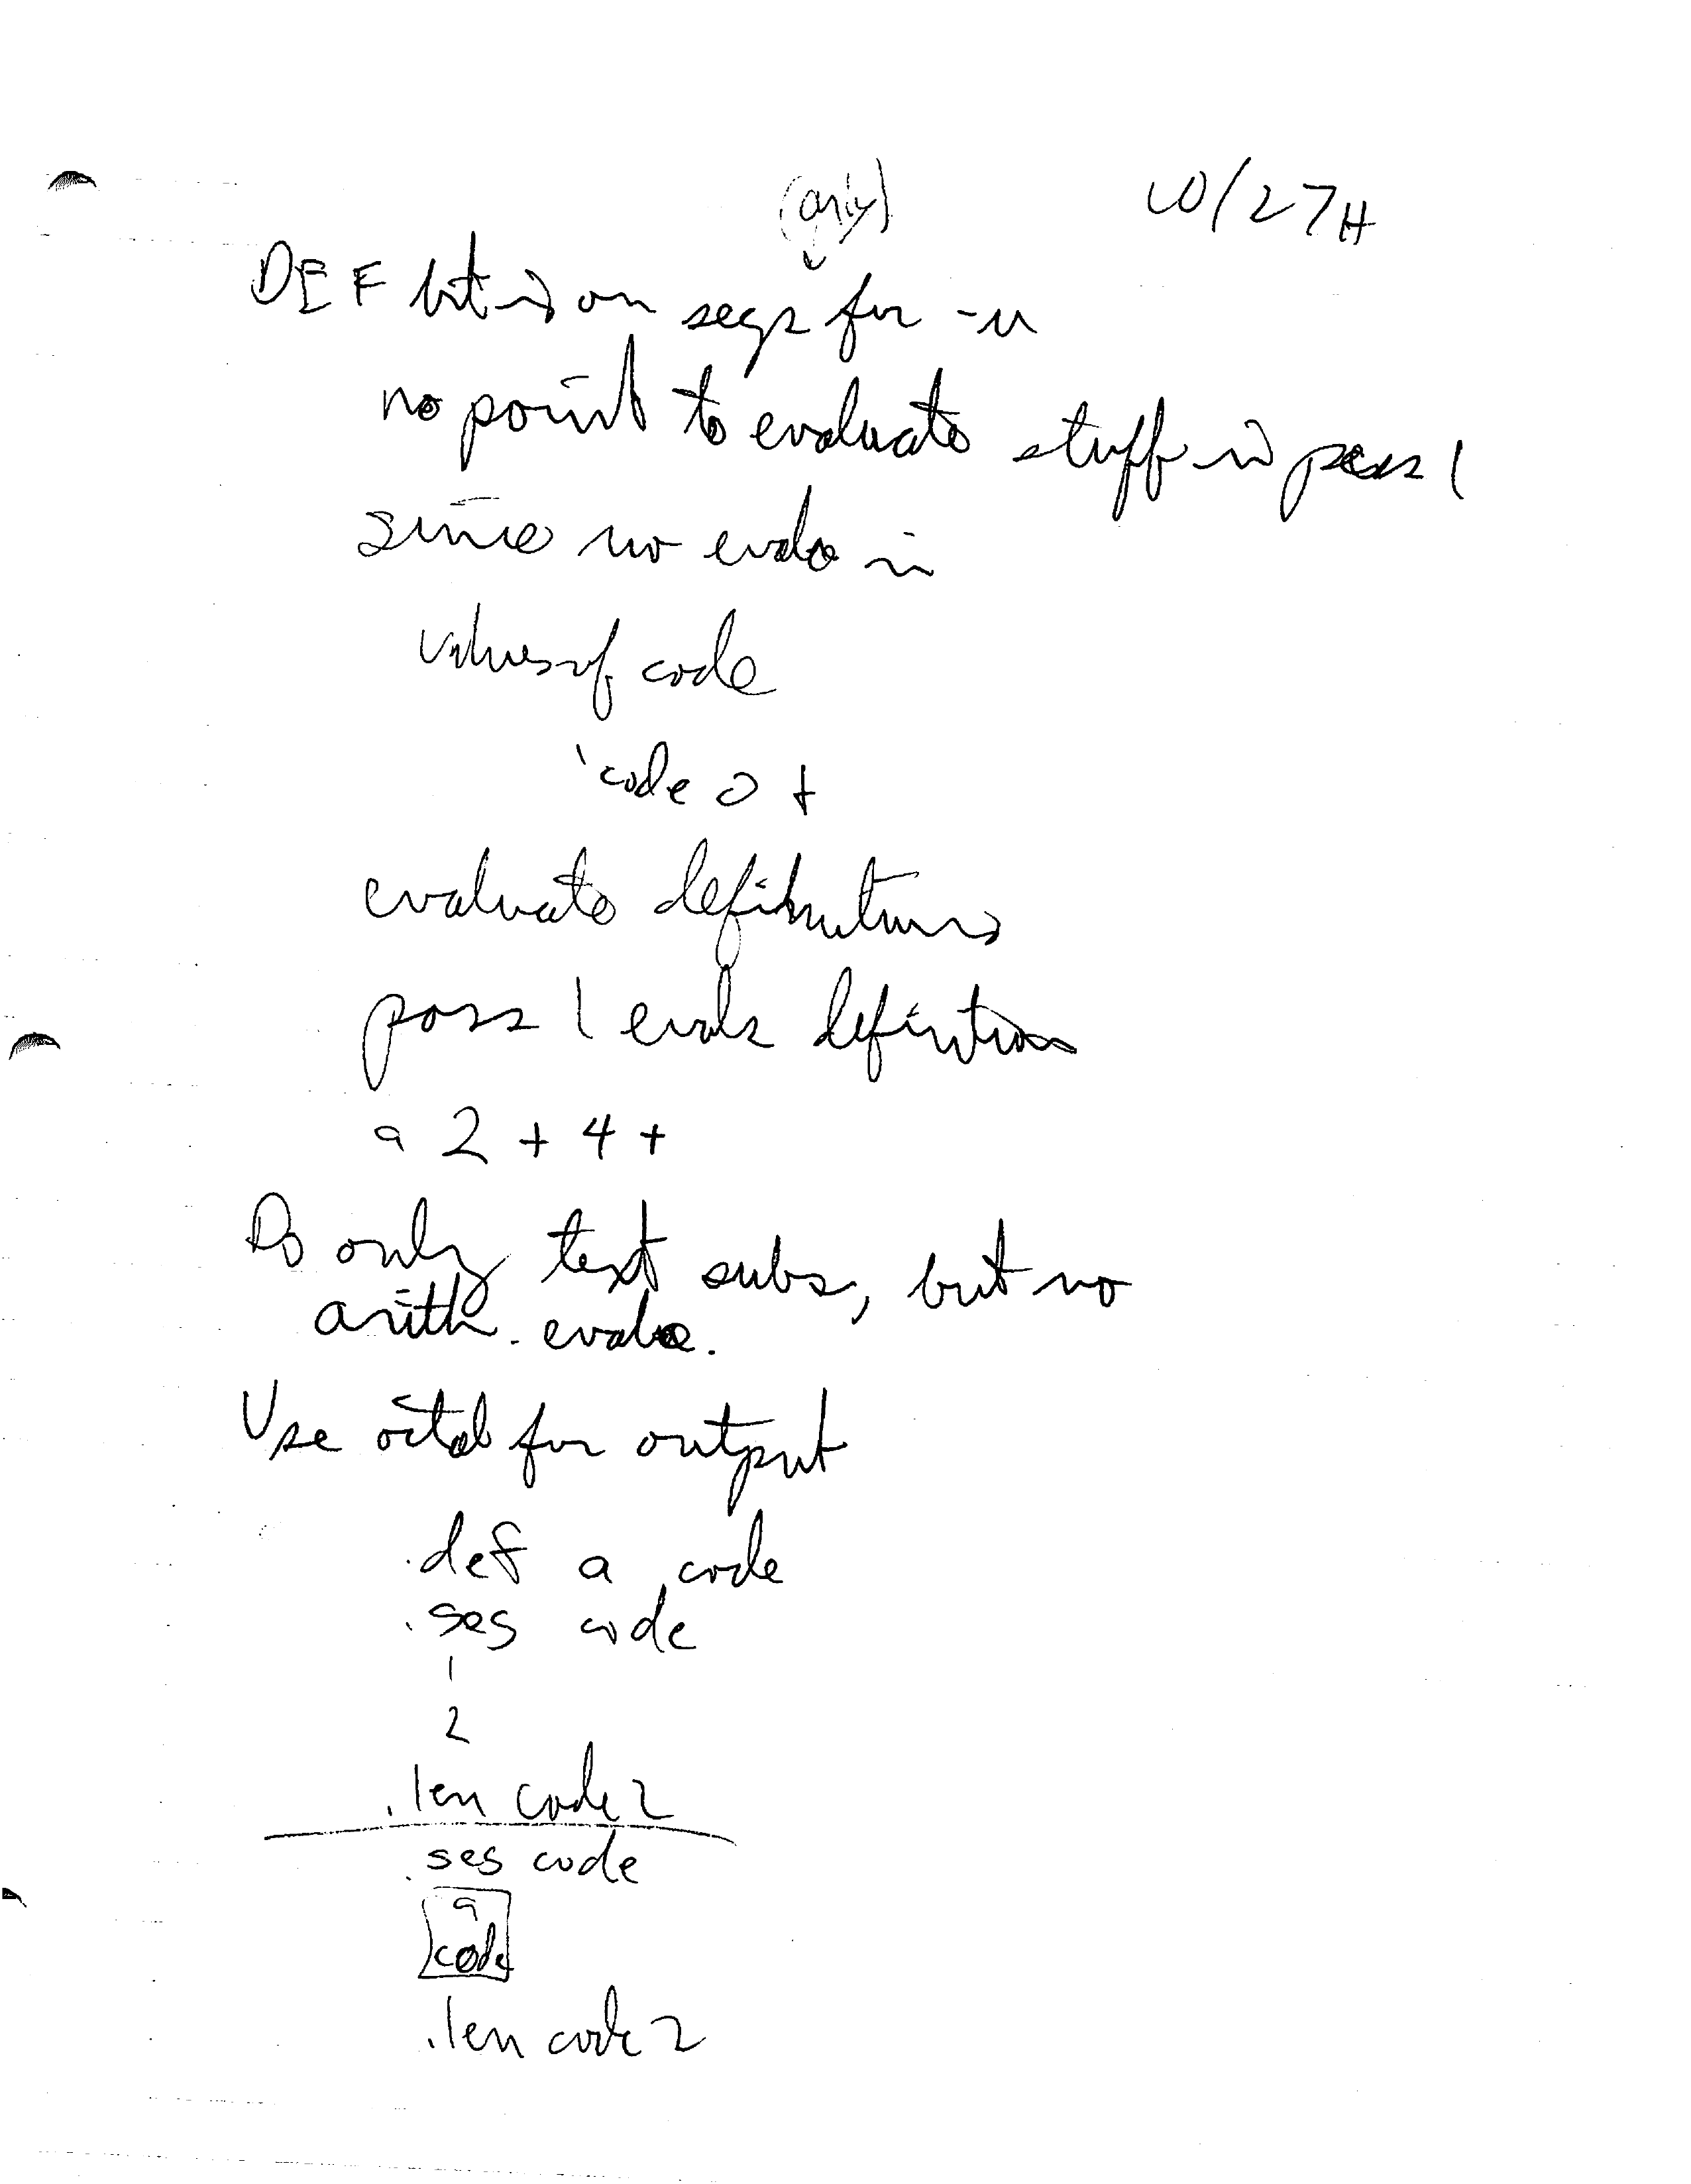 10/27 H
(only)
DEF bit is on segs for -u
no point to evaluate stuff in pass 1
since no evals in
values of code
'code 0 +
evaluate definitions
pass 1 evals definitions
a 2 + 4 +
Do only text subs, but no
arith. evals.
Use octal for output
.def a code
.seg code
1
2
.len code 2
.seg code
a
code
.len code 2